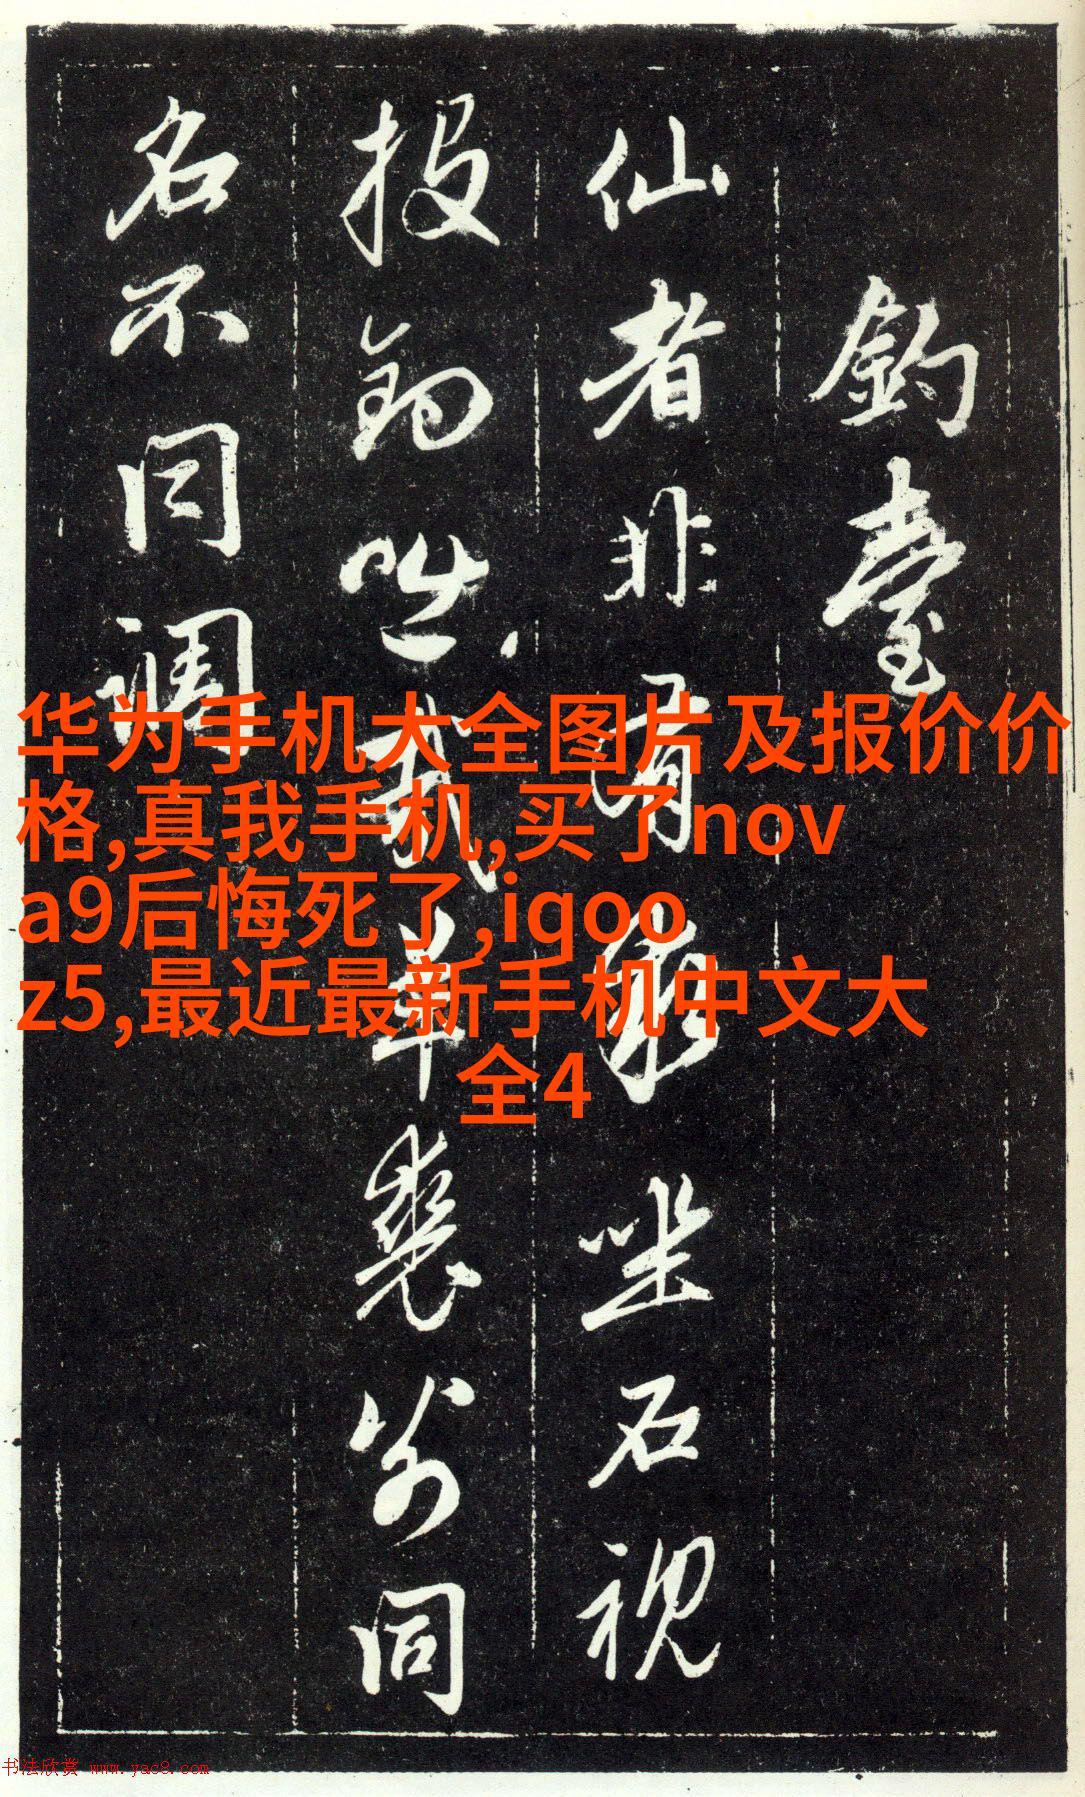 釣臺
仙者非有求坐石視
投釣咄哉羊裘翁同
名不同調
华为手机大全图片及报价价
格,真我手机,买了nov
a9后悔死了,iqoo
z5,最近最新手机中文大
全4
书法欣赏 www.yac8.com